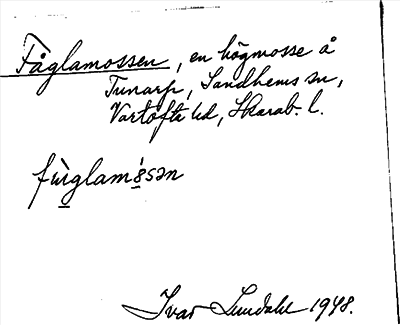 Fåglamossen, en högmosse å
Tunarp, Sandhems sn,
Vartofta hd, Skarab. l.
fùɡlamósən
Ivar Lundahl 1948.